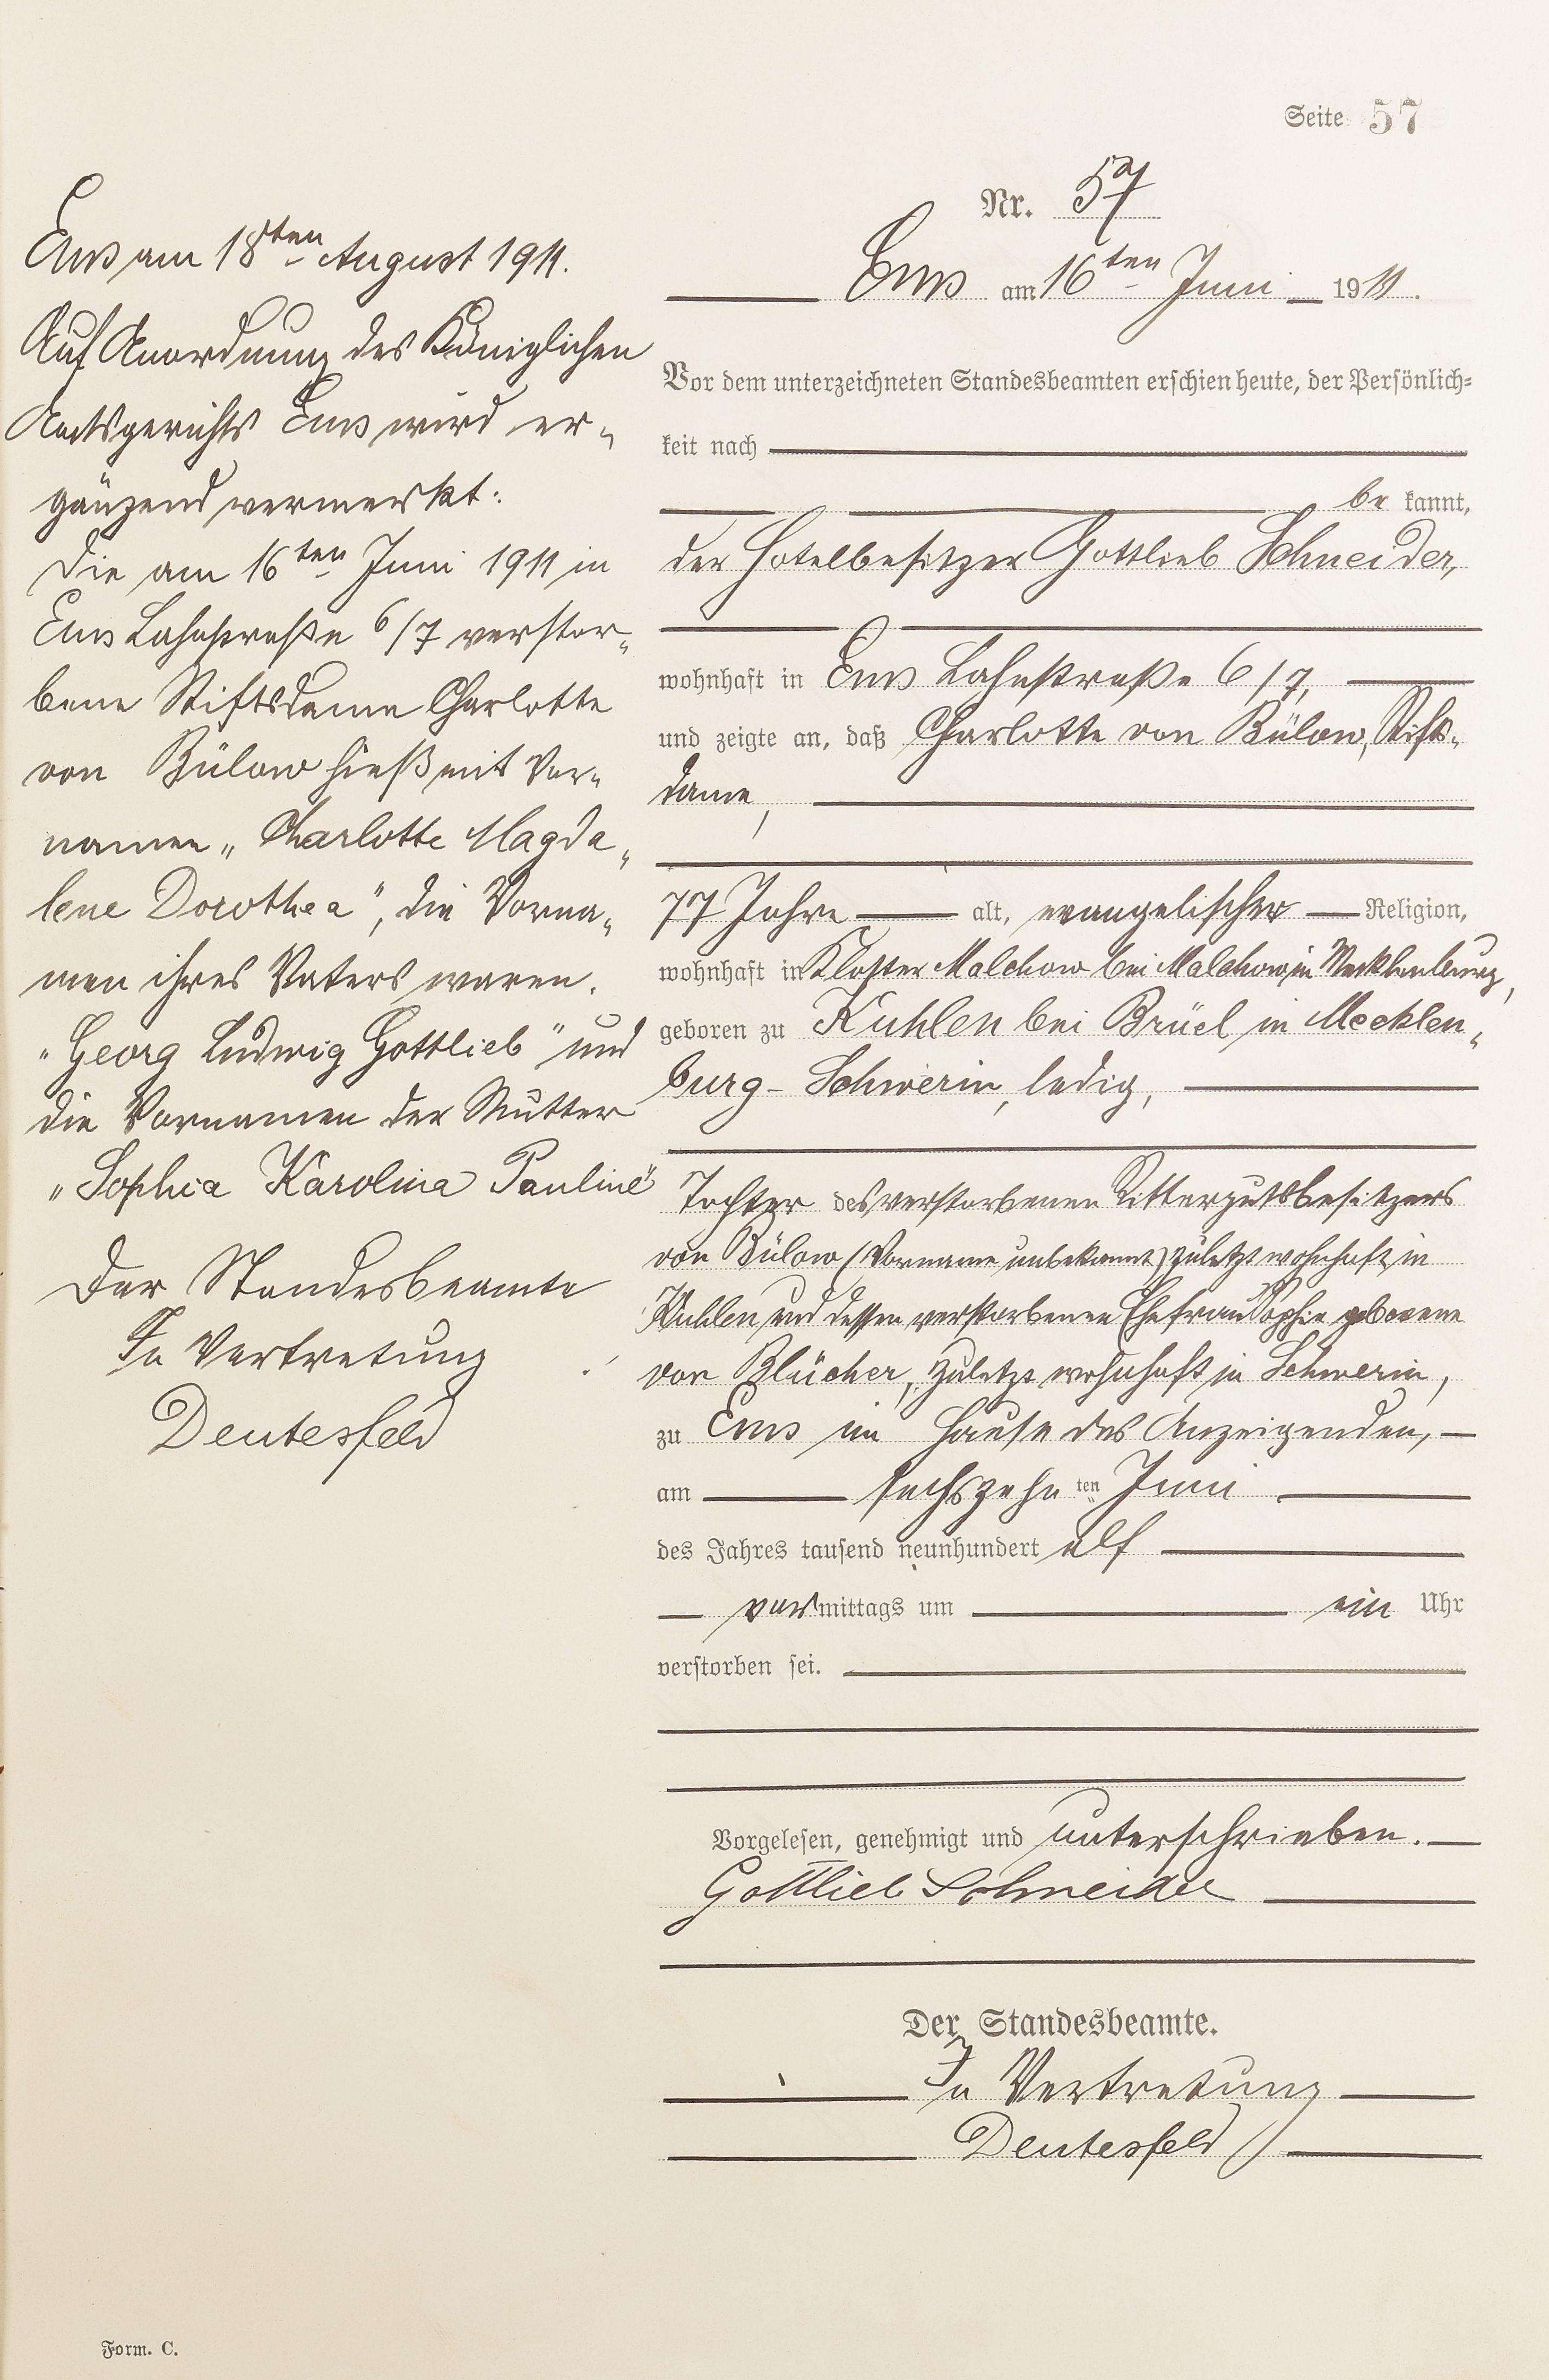 Seite 57
Ems am 18ten August 1911.
Auf Anordnung des Königlichen
Amtsgerichts Ems wird er-
gänzend vermerkt:
Die am 16ten Juni 1911 in
Ems Lahnstraße 6/7 verstor-
bene Stiftsdame Charlotte
von Bülow hieß mit Vor-
namen „Charlotte Magda-
lene Dorothea", die Vorna-
men ihres Vaters waren.
„Georg Ludwig Gottlieb" und
die Vornamen der Mutter
„Sophia Karolina Pauline"
Der Standesbeamte
In Vertretung
Deutesfeld
Nr. 57
Ems am 16ten Juni 1911.
Vor dem unterzeichneten Standesbeamten erschien heute, der Persönlich-
keit nach
be kannt,
der Hotelbesitzer Gottlieb Schneider,
wohnhaft in Ems Lahnstraße 6/7,
und zeigte an, daß Charlotte von Bülow, Stifts-
dame,
77 Jahre alt, evangelischer Religion,
wohnhaft in Kloster Malchow bei Malchow in Mecklenburg,
geboren zu Kuhlen bei Brüel in Mecklen-
burg-Schwerin, ledig,
Tochter des verstorbenen Rittergutsbesitzers
von Bülow (Vorname unbekannt) zuletzt wohnhaft in
Kuhlen und dessen verstorbenen Ehefrau Sophie geborene
von Blücher, zuletzt wohnhaft in Schwerin,
zu Ems im Hause des Anzeigenden,
am sechszehnten Juni
des Jahres tausend neunhundert elf
vormittags um ein Uhr
verstorben sei.
Vorgelesen, genehmigt und unterschrieben.
Gottlieb Schneider
Der Standesbeamte.
In Vertretung
Deutesfeld
Form. C.